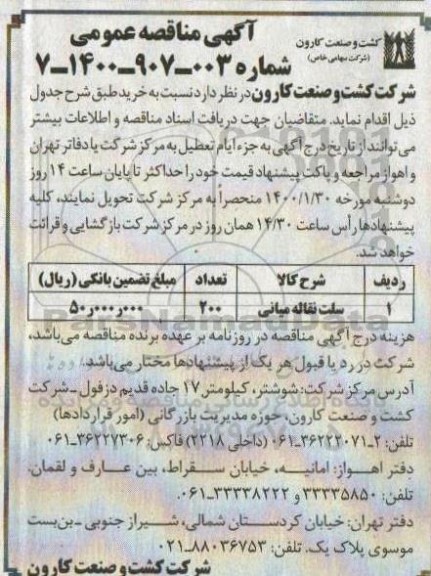 آگهی مناقصه عمومی
کشت و صنعت کارون
(شرکت سهامی خاص)
شماره ۰۰۳-۹۰۷-۱۴۰۰-۷
شرکت کشت و صنعت کارون در نظر دارد نسبت به خرید طبق شرح جدول
ذیل اقدام نماید. متقاضیان جهت دریافت اسناد مناقصه و اطلاعات بیشتر
می‌توانند از تاریخ درج آگهی به جزء ایام تعطیل به مرکز شرکت یا دفاتر تهران
و اهواز مراجعه و پاکت پیشنهاد قیمت خود را حداکثر تا پایان ساعت ۱۴ روز
دوشنبه مورخه ۱۴۰۰/۱/۳۰ منحصراً به مرکز شرکت تحویل نمایند، کلیه
پیشنهادها رأس ساعت ۱۴/۳۰ همان روز در مرکز شرکت بازگشایی و قرائت
خواهد شد.
ردیف شرح کالا تعداد مبلغ تضمین بانکی (ریال)
۱ سلت نقاله میانی ۲۰۰ ۵۰ر۰۰۰ر۰۰۰
هزینه درج آگهی مناقصه در روزنامه بر عهده برنده مناقصه می‌باشد،
شرکت در رد یا قبول هر یک از پیشنهادها مختار می‌باشد.
آدرس مرکز شرکت: شوشتر، کیلومتر ۱۷ جاده قدیم دزفول - شرکت
کشت و صنعت کارون، حوزه مدیریت بازرگانی (امور قراردادها)
تلفن: ۲-۳۶۲۲۲۰۷۱-۰۶۱ (داخلی ۲۲۱۸) فاکس: ۳۶۲۲۷۳۰۶-۰۶۱
دفتر اهواز: امانیه، خیابان سقراط، بین عارف و لقمان.
تلفن: ۳۳۳۳۵۸۵۰ و ۳۳۳۳۸۲۲۲-۰۶۱.
دفتر تهران: خیابان کردستان شمالی، شیراز جنوبی - بن‌بست
موسوی پلاک یک. تلفن: ۸۸۰۳۶۷۵۳-۰۲۱
شرکت کشت و صنعت کارون
ParsNamadData